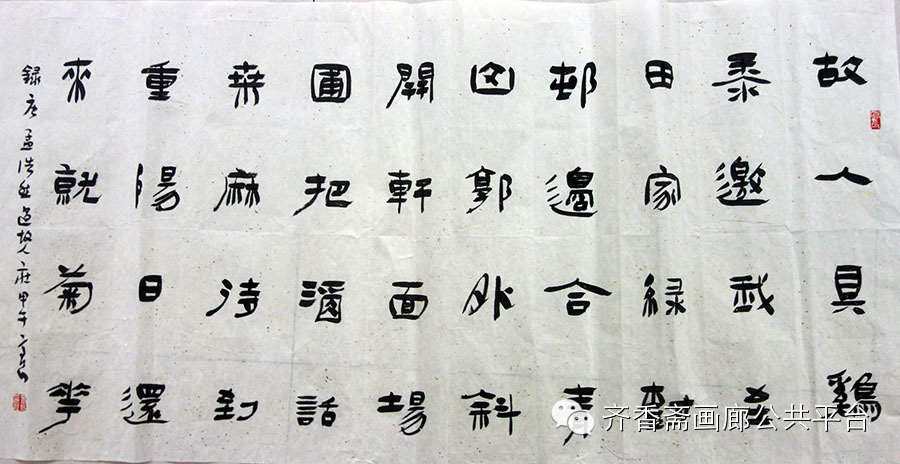 故人具鷄
黍邀我至
田家緑樹
邨邊合青
山郭外斜
開軒面場
圃把酒話
桒麻待到
重陽日還
來就菊花
録唐孟浩然過故人庄甲午
齐香斋画廊公共平台